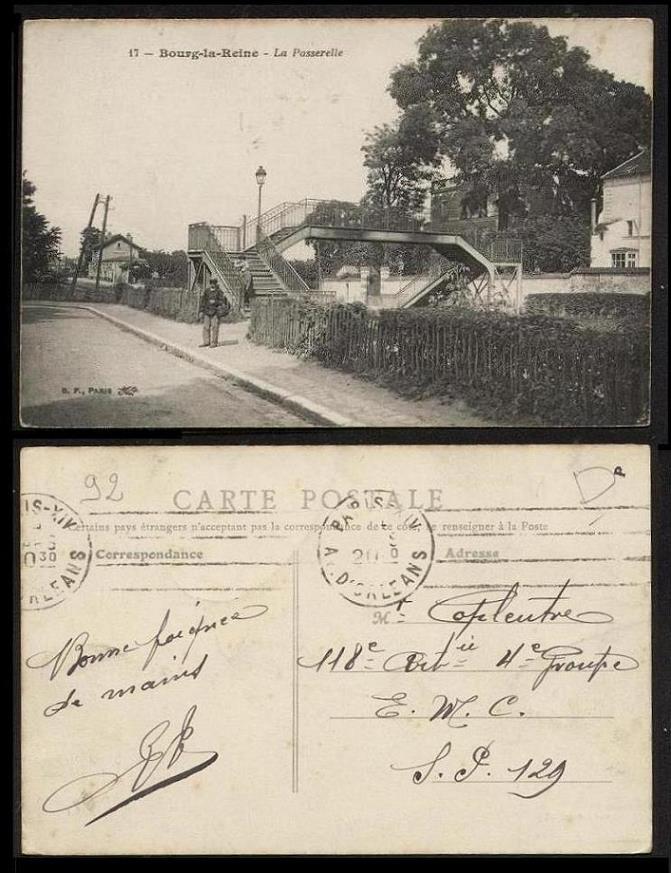 17 – Bourg-la-Reine - La Passerelle
B. F., PARIS
92
CARTE POSTALE
Certains pays étrangers n'acceptant pas la correspondance de ce côté, se renseigner à la Poste
Correspondance
Adresse
IS-XIV
30
ORLEANS
PARIS XIV
20
AV. D'ORLEANS
Bonne poignée
de mains
Mr Coplentre
118e Btrie 4e Groupe
E. M. C.
S. P. 129